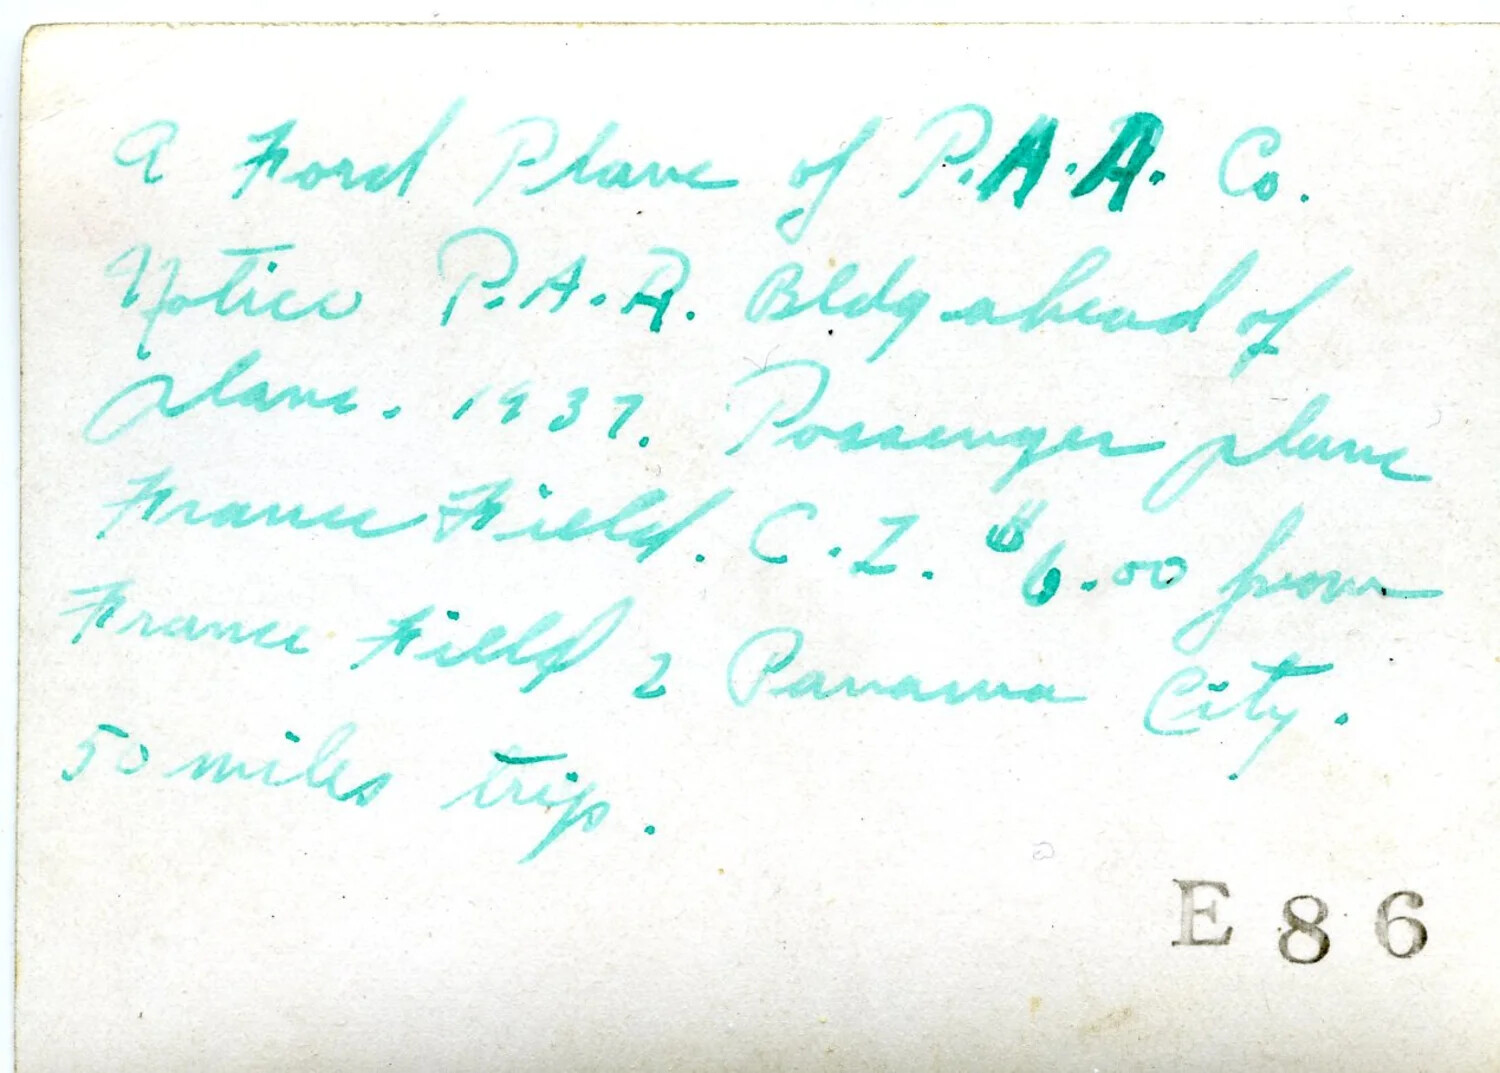 A Ford Plane of P.A.A. Co.
Notice P.A.A. Bldg ahead of
plane. 1937. Passenger plane
France Field. C.Z. $6.00 from
France Field 2 Panama City.
50 miles trip.
E 86